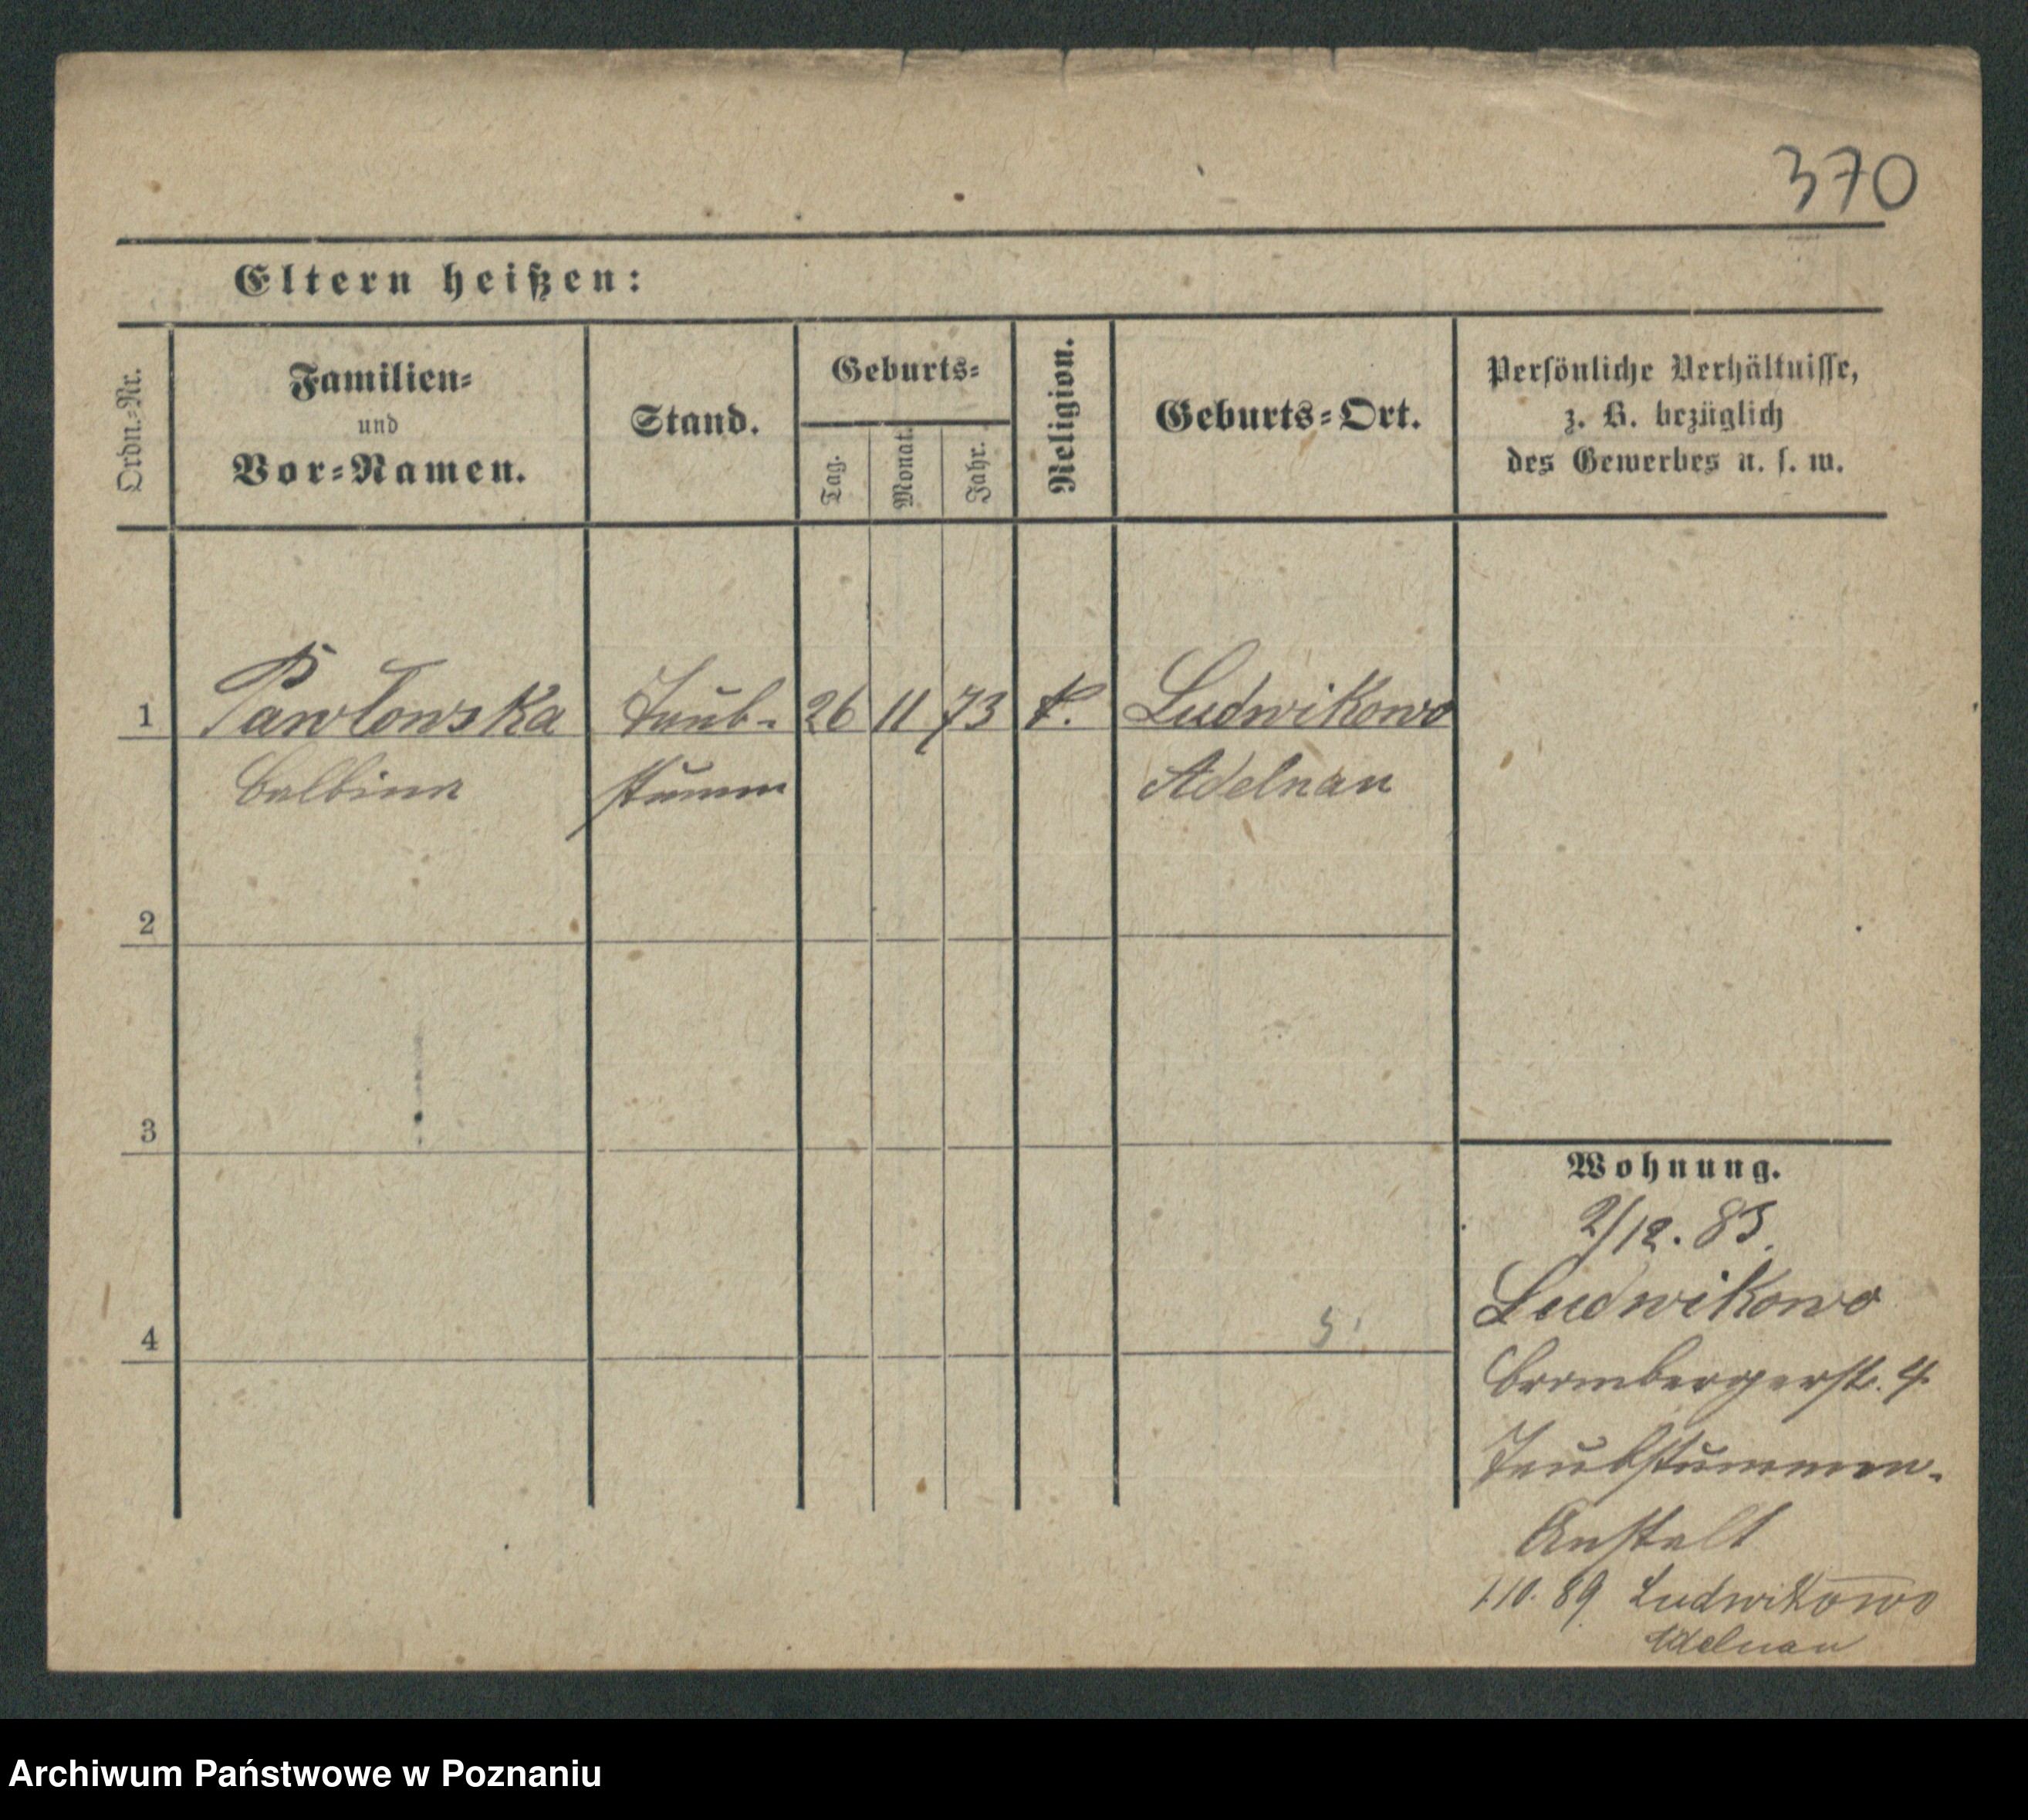 370
Eltern heißen:
Ordn.-Nr.
Familien-
und
Vor-Namen.
Stand.
Geburts-
Tag.
Monat.
Jahr.
Religion.
Geburts-Ort.
Persönliche Verhältnisse,
z. B. bezüglich
des Gewerbes u. s. w.
1 Pawłowska Taub- 26 11 73 k. Ludwikowo
Balbina stumm Adelnau
2
3
4
Wohnung.
2/12. 83.
Ludwikowo
Brombergerstr. 4
Taubstummen-
Anstalt
1.10.89 Ludwikowo
Adelnau
Archiwum Państwowe w Poznaniu